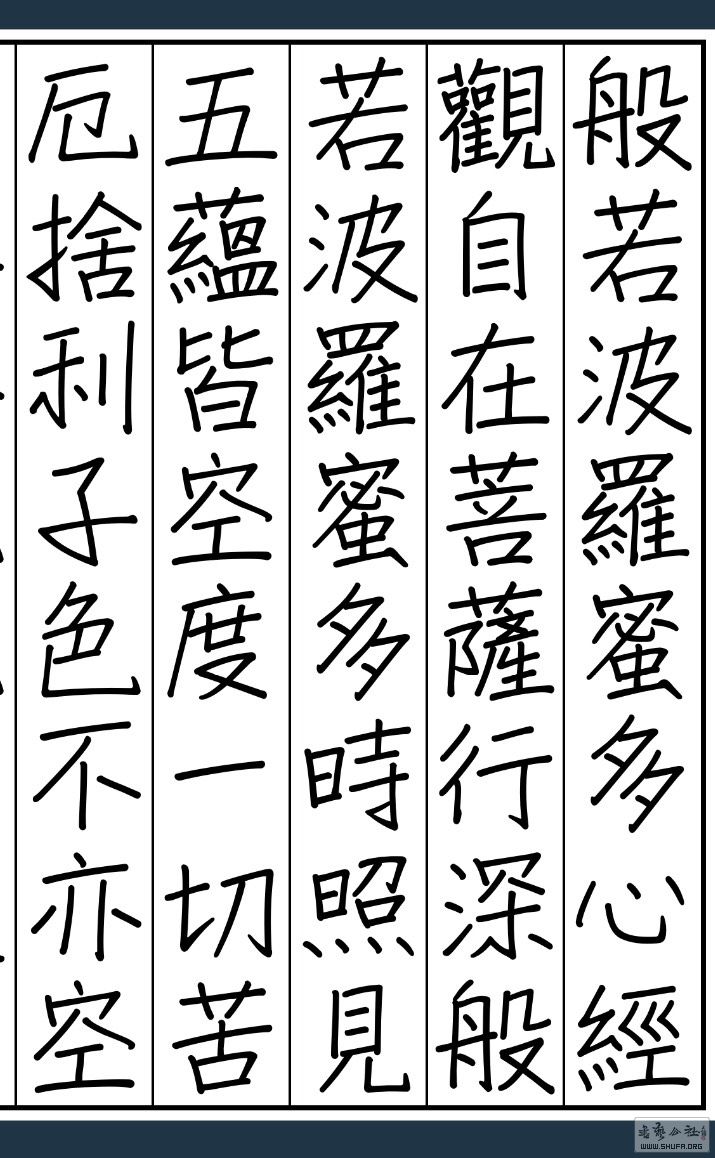 般若波羅蜜多心經
觀自在菩薩行深般
若波羅蜜多時照見
五蘊皆空度一切苦
厄捨利子色不亦空
WWW.SHUFA.ORG